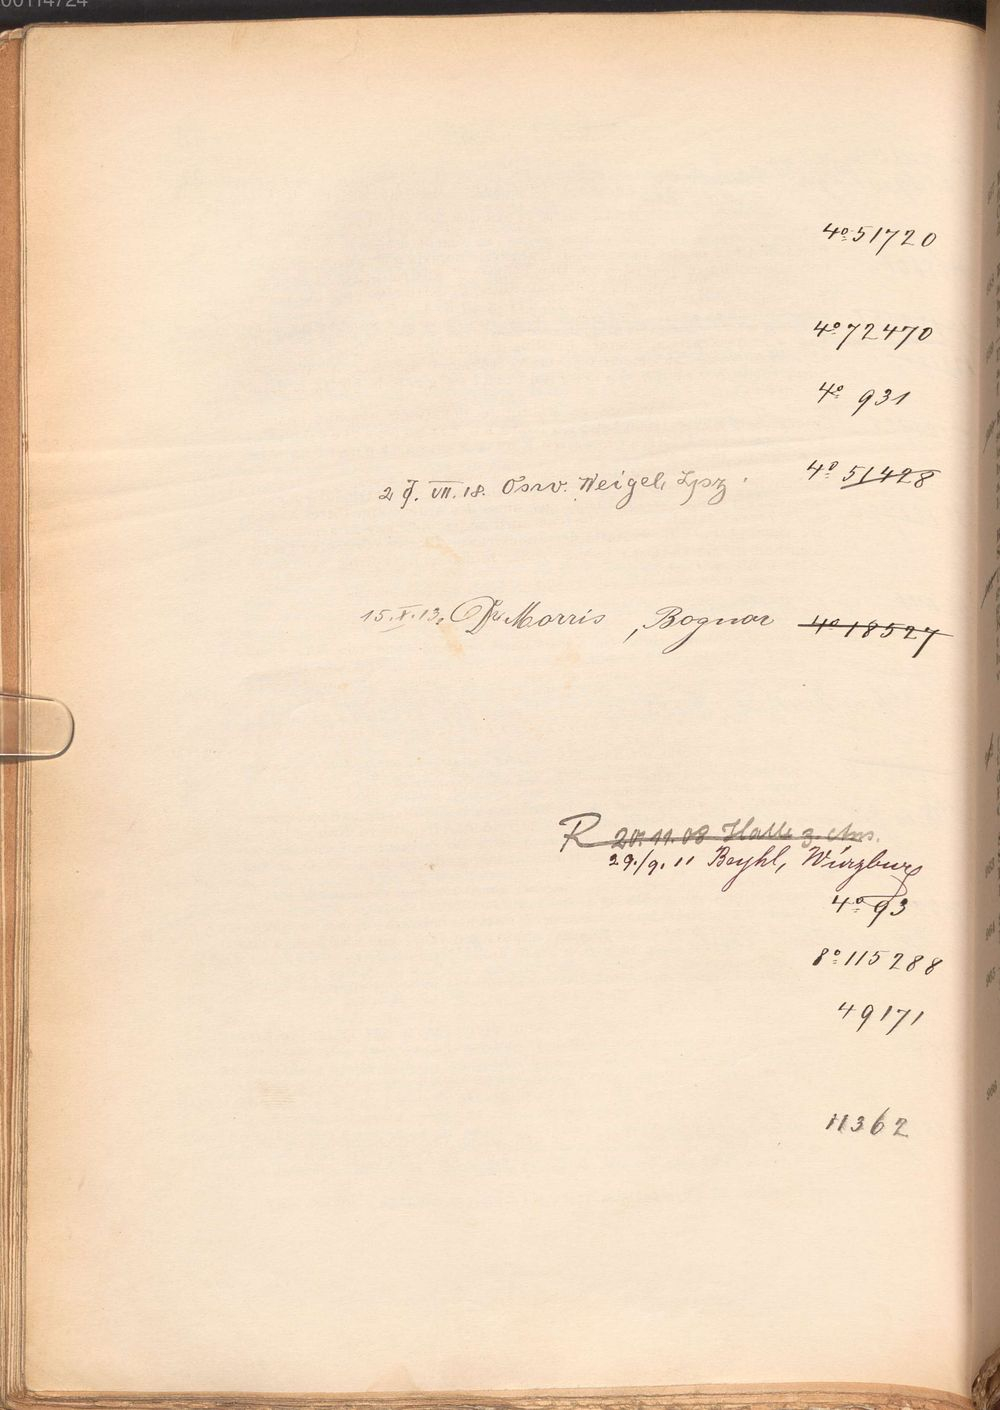 00114724
4º 51720
4º 72470
4º 931
29. VII. 18. Osw. Weigel, Lpz. 4º 51428
15. X. 13. Dr Morris, Bognor 4º 18527
R 20. 11. 08 Halle z. Ans.
29./9. 11 Beyhl, Würzburg
4º 93
8º 115288
49171
11362